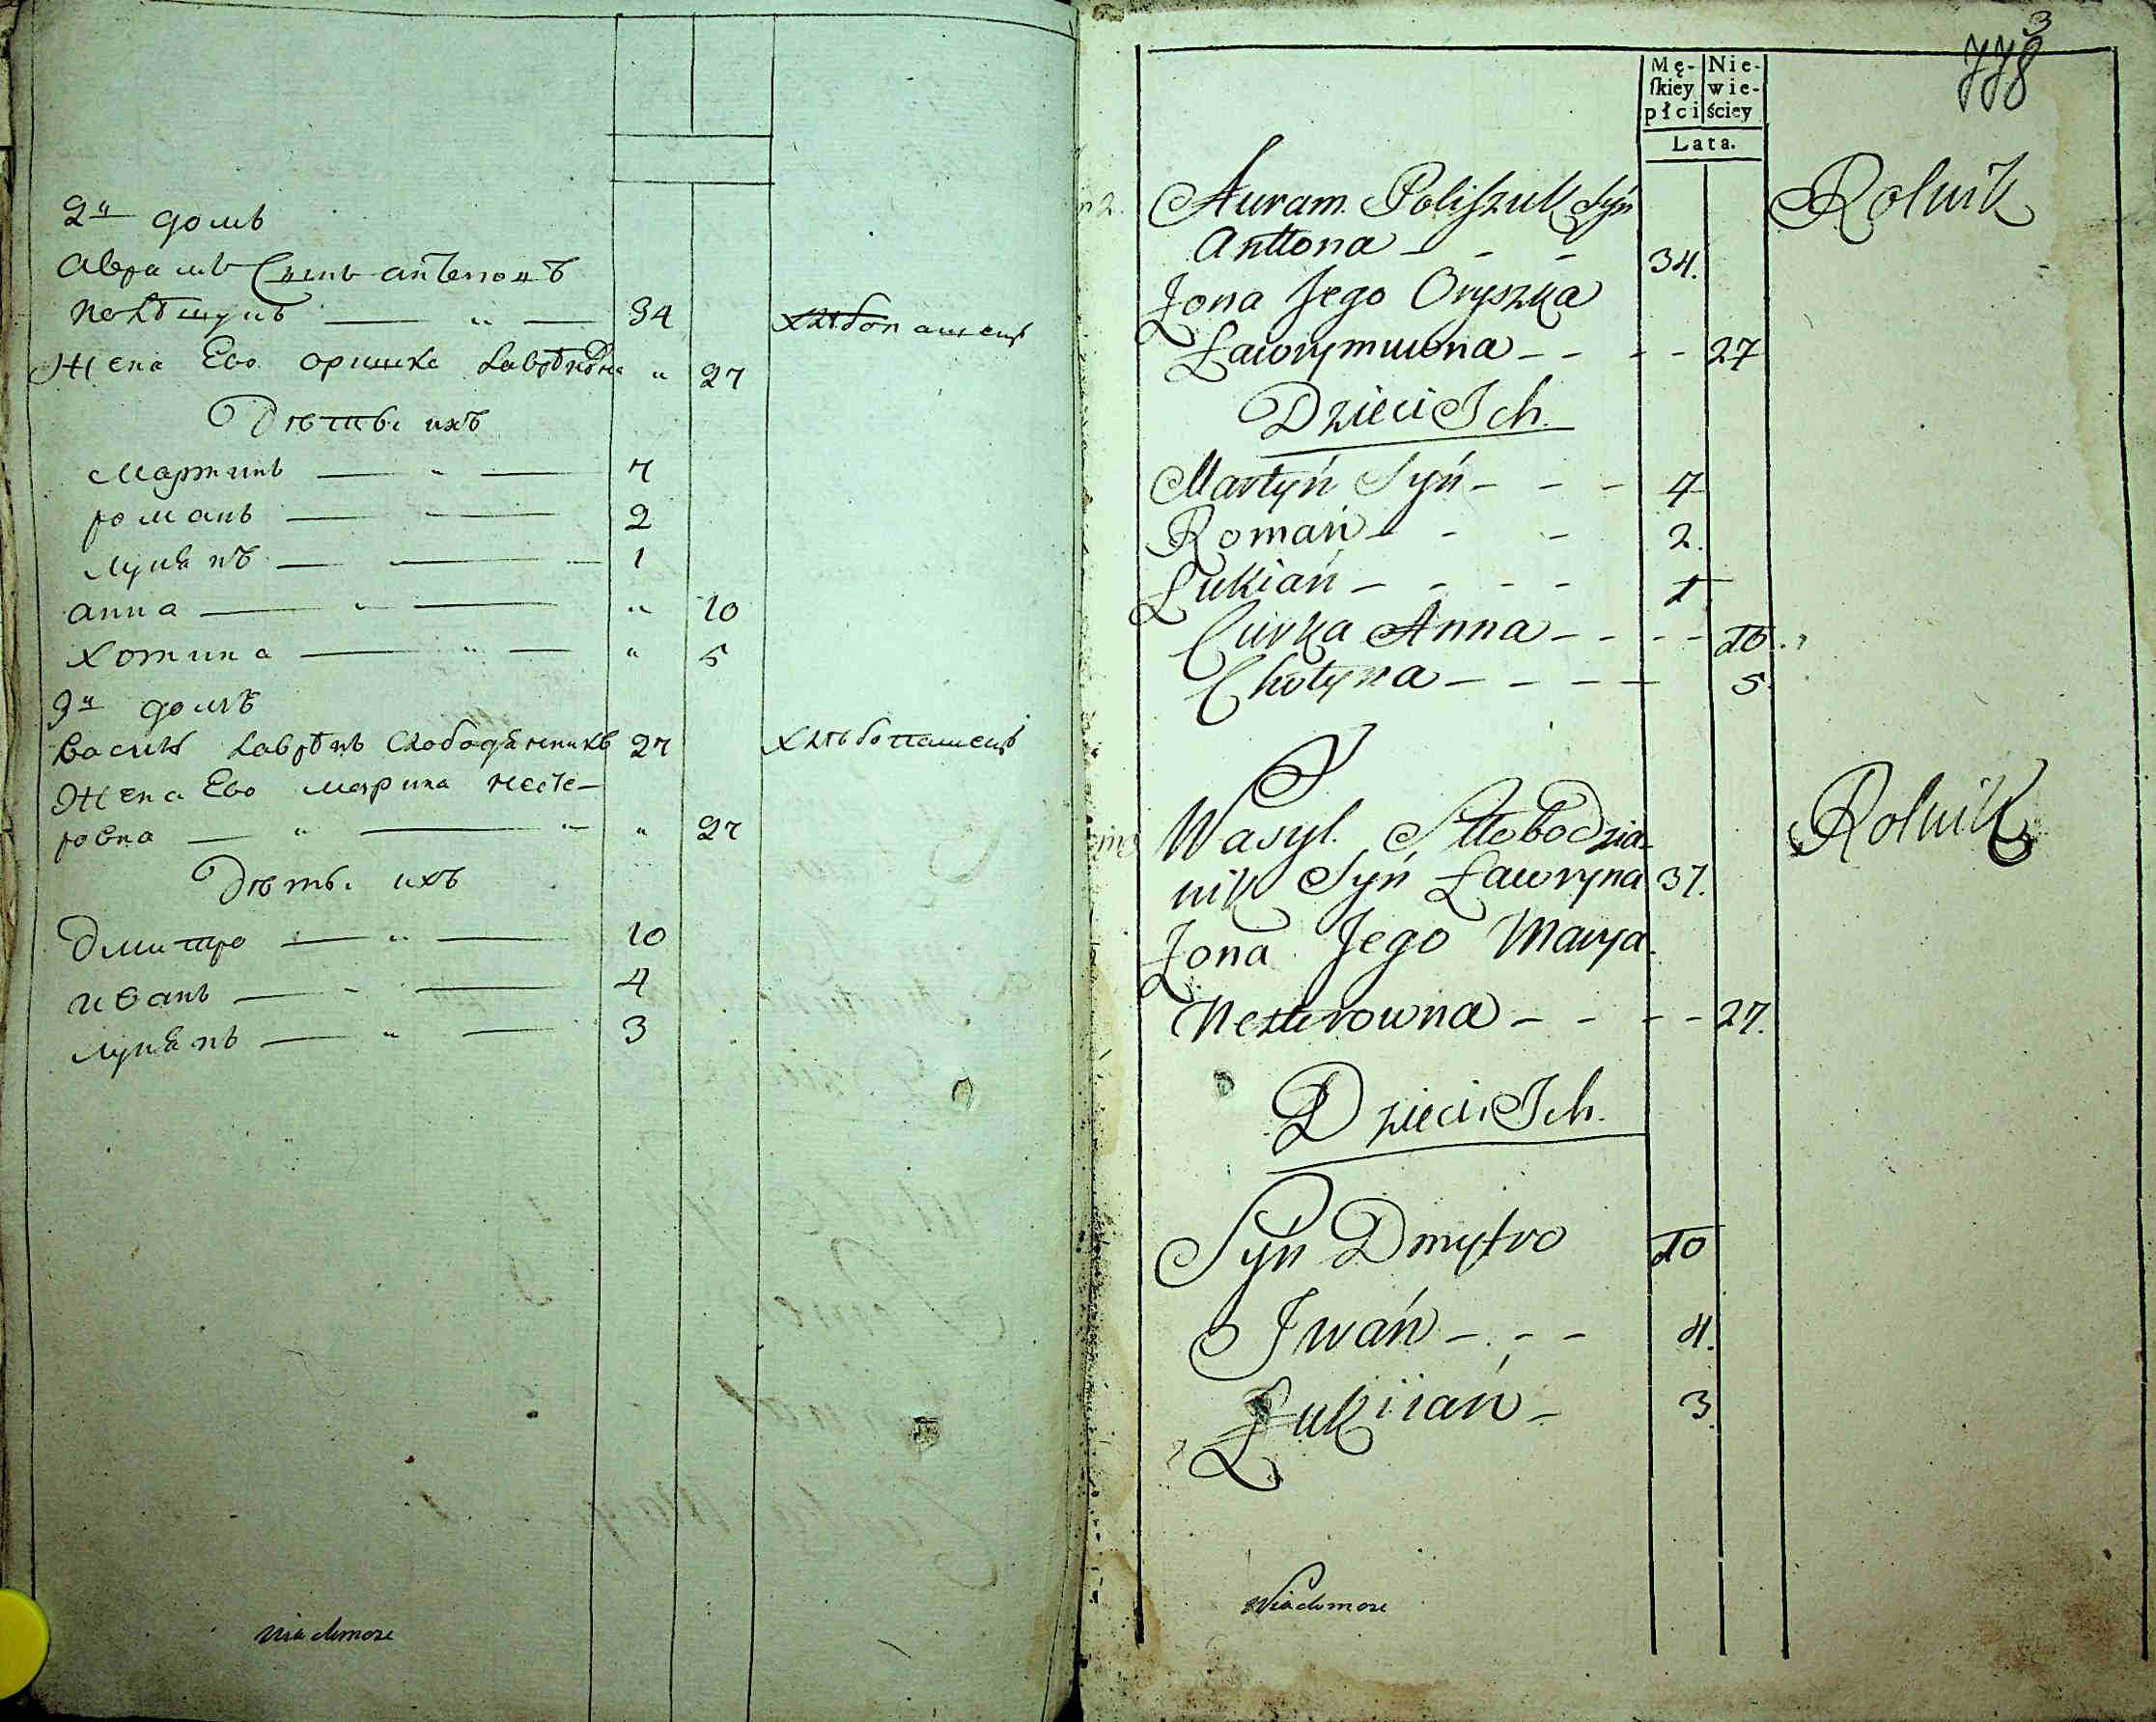 2й домъ
Аврамъ Сынъ антоновъ
полѣщукъ — " — 34 хлѣбопашецъ
Жена Ево оришка Лаврѣновна " 27
Дѣть. ихъ
Мартинъ — " — 7
романъ — — 2
лукянъ — — 1
анна — " — " 10
хотина — " — " 5
3й домъ
василь лаврѣнъ слободяникъ 27 хлѣбопашецъ
Жена Ево марина несте-
ровна — " — " " 27
Дѣть. ихъ
Дмитро — " — 10
иванъ — " — 4
лукянъ — " — 3
Wiadomose
3
778
Mę-
ſkiey
płci
Nie-
wie-
ściey
Lata.
n 2. Auram. Poliszuk Syn Rolnik
Anttona - - - 34.
Żona Jego Oryszka
Ławrymuwna - - - - 27
Dzieci Ich.
Martyń Syń - - - 7
Romań - - - 2.
Łukiań - - - - 1
Curka Anna - - - - 10.
Chotyna - - - - 5.
Wasyl. Słłobodzia- Rolnik
nik Syń Ławryna 37.
Żona Jego Marya.
Nesterowna - - - - 27.
Dzieci Ich.
Syń Dmytro 10
Iwań - - - 4.
Łukiiań - 3.
Wiadomose